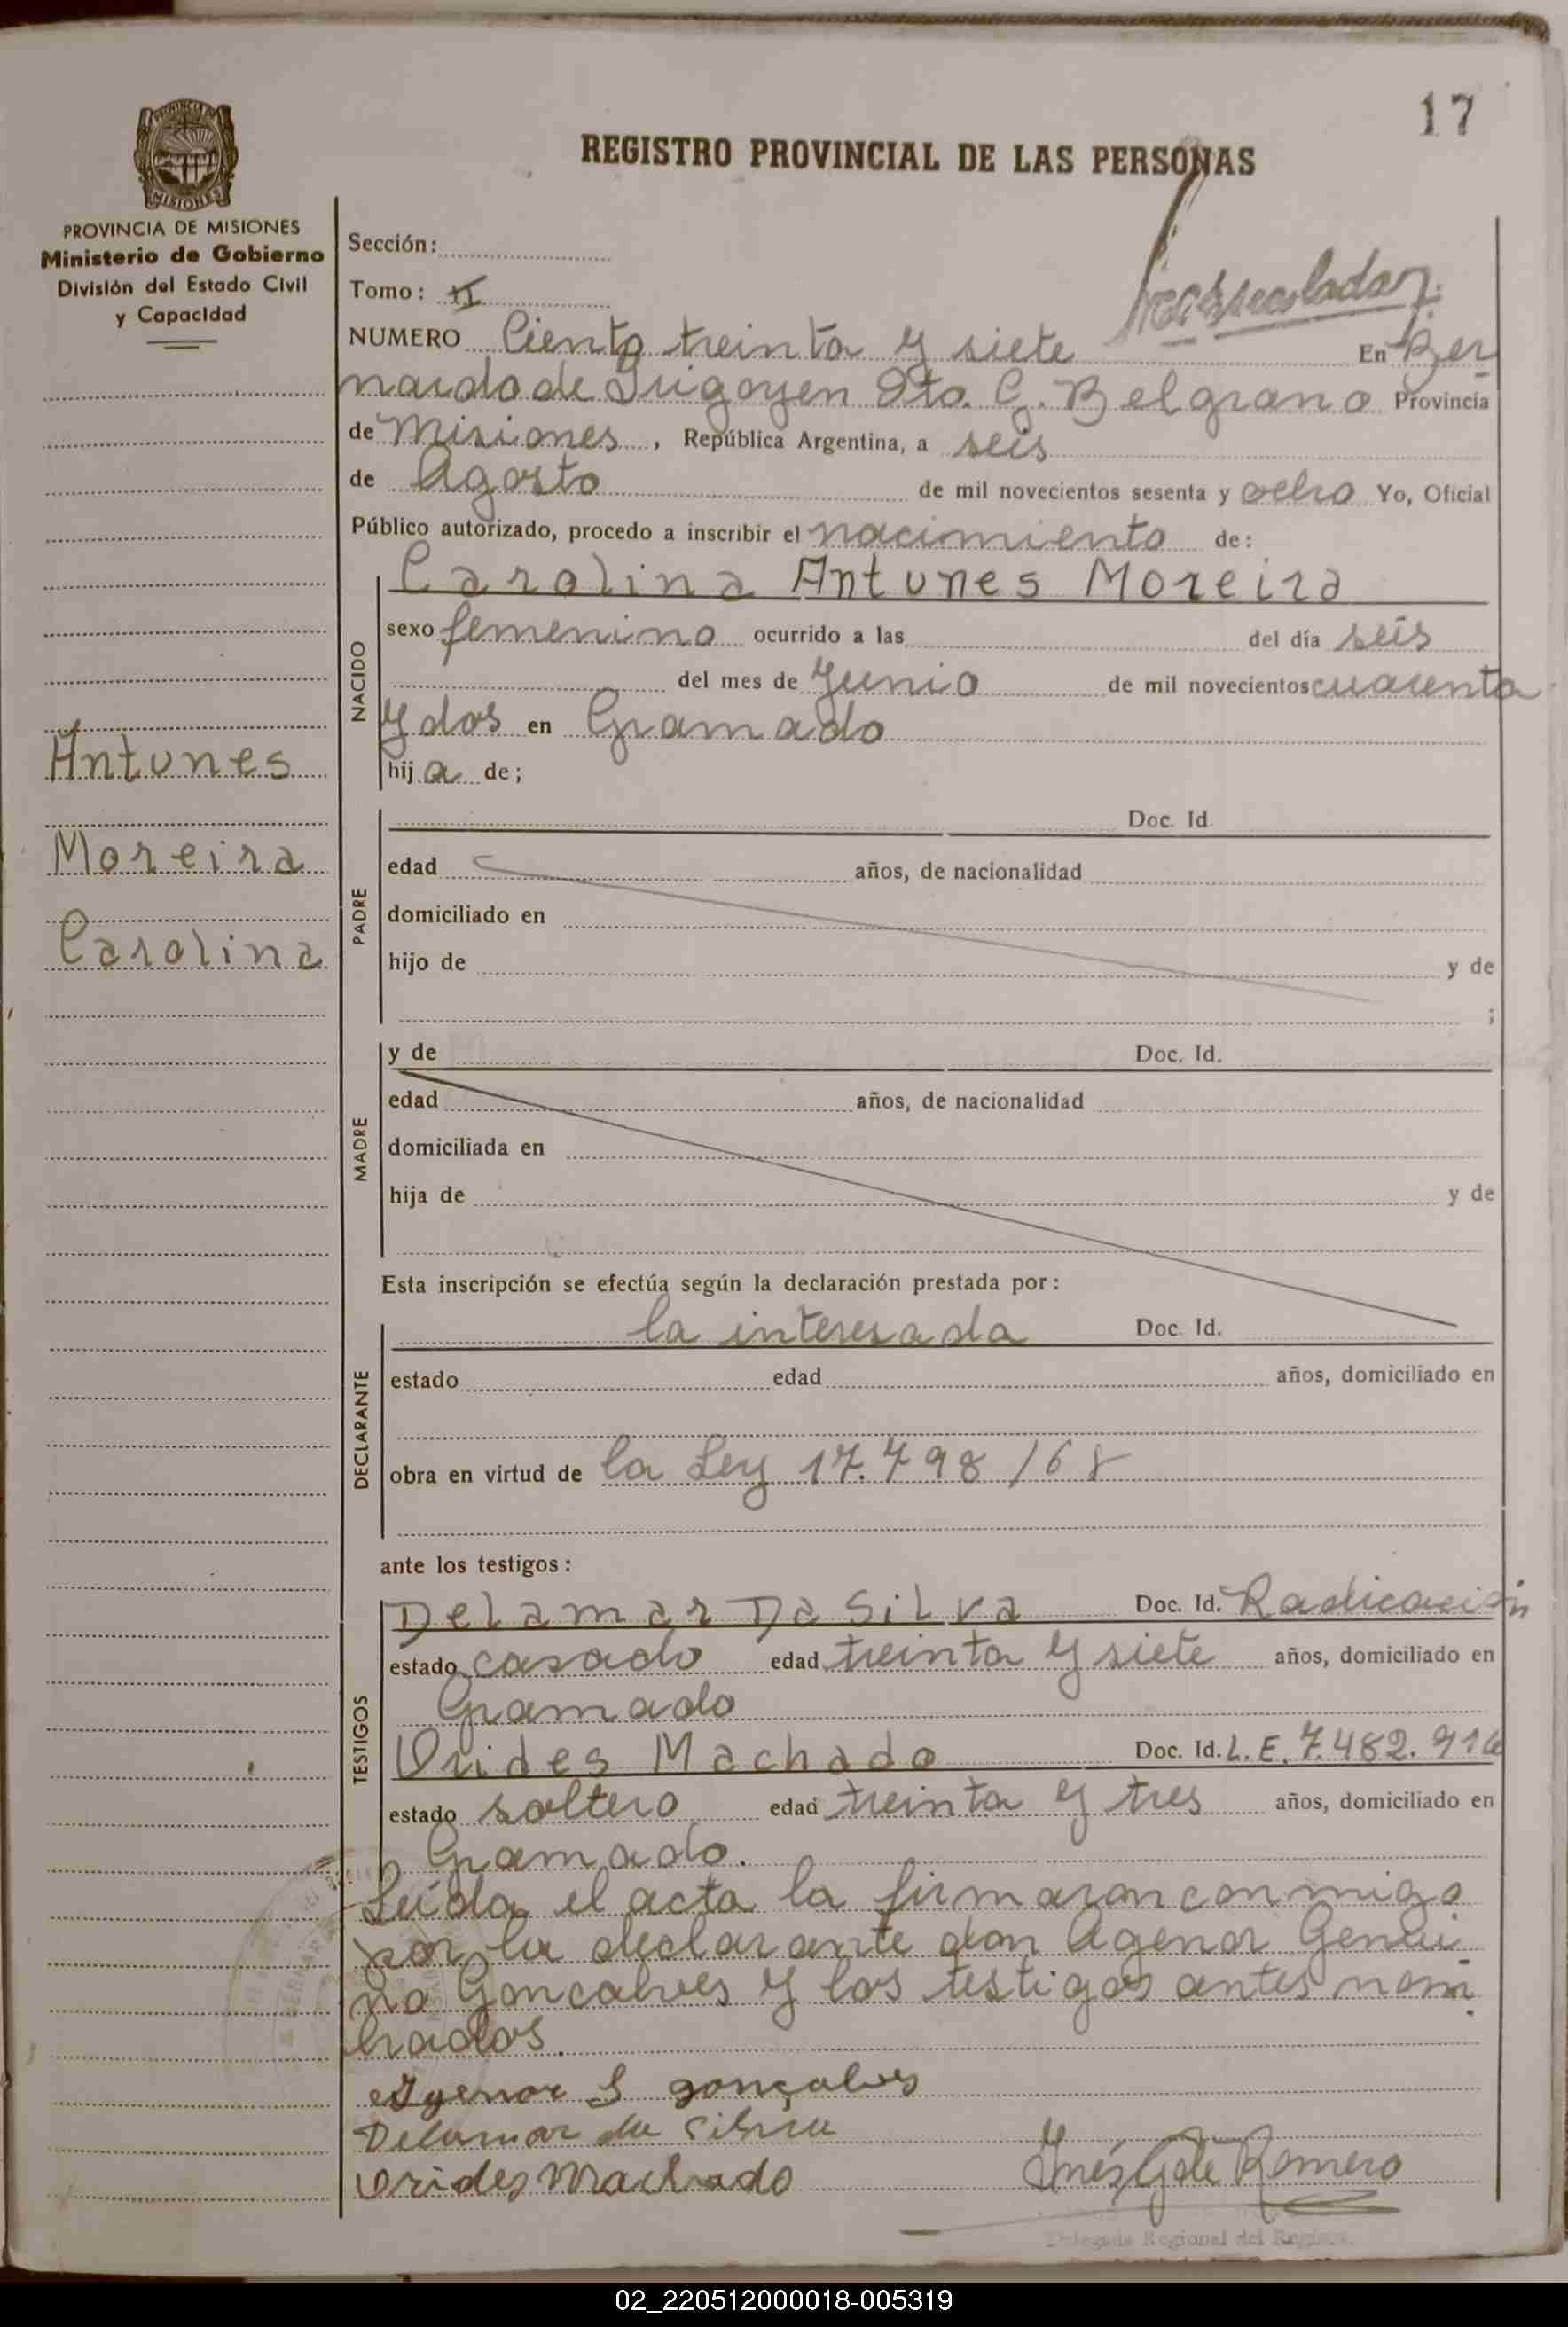 17
REGISTRO PROVINCIAL DE LAS PERSONAS
PROVINCIA DE MISIONES
Ministerio de Gobierno
División del Estado Civil
y Capacidad
Sección:
Tomo: II
NUMERO Ciento treinta y siete En Ber
nardo de Irigoyen Dto. G. Belgrano Provincia
de Misiones, República Argentina, a seis
de Agosto de mil novecientos sesenta y ocho Yo, Oficial
Público autorizado, procedo a inscribir el nacimiento de:
Antunes
Moreira
Carolina
NACIDO
Carolina Antunes Moreira
sexo femenino ocurrido a las del día seis
del mes de Junio de mil novecientos cuarenta
y dos en Gramado
hija de;
PADRE
Doc. Id.
edad años, de nacionalidad
domiciliado en
hijo de y de
;
MADRE
y de Doc. Id.
edad años, de nacionalidad
domiciliada en
hija de y de
Esta inscripción se efectúa según la declaración prestada por:
DECLARANTE
la interesada Doc. Id.
estado edad años, domiciliado en
obra en virtud de la Ley 17.798/68
ante los testigos:
TESTIGOS
Delamar Da Silva Doc. Id. Radicación
estado casado edad treinta y siete años, domiciliado en
Gramado
Orides Machado Doc. Id. L.E. 7.482.916
estado soltero edad treinta y tres años, domiciliado en
Gramado.
Leída el acta la firmaron conmigo
por la declarante don Agenor Genui
no Goncalves y los testigos antes nom
brados.
Agenor G gonçalves
Delamar da Silva
Orides Machado
Inés G de Romero
Delegada Regional del Registro
02_220512000018-005319